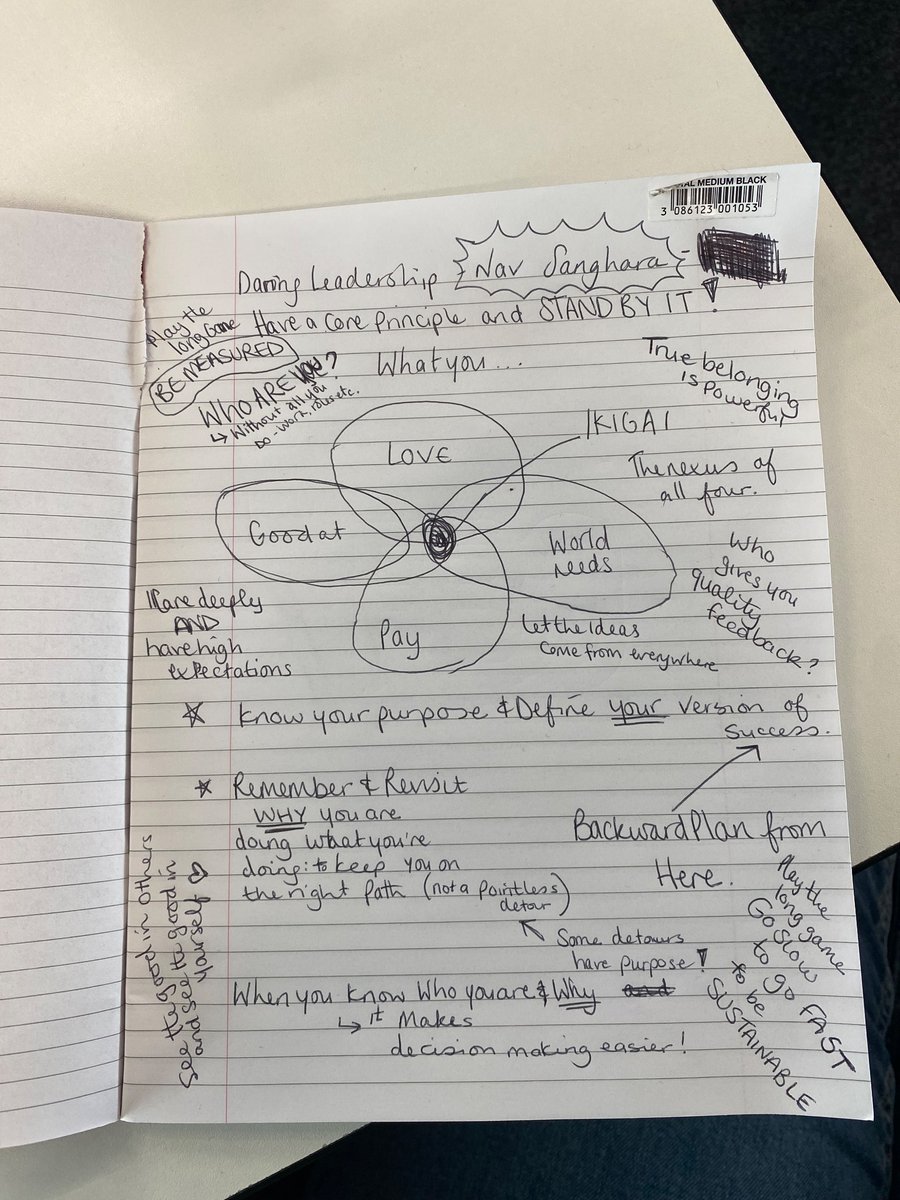 AL MEDIUM BLACK
3 086123 001053
Daring Leadership Nav Sanghara
Play the
long Game
Have a core principle and STAND BY IT!
BE MEASURED
WHO ARE YOU?
↳ Without all you
Do - work, roles etc.
What you...
True belonging
is powerful
LOVE
IKIGAI
The nexus of
all four.
Good at
World
needs
Who
gives you
quality
feedback?
Care deeply
AND
have high
expectations
Pay
Let the Ideas
Come from everywhere
☆ Know your purpose & Define your version of
Success.
☆ Remember & Revisit
WHY you are
doing what you're
doing: to keep you on
the right path (not a pointless
detour)
Backward Plan from
Here.
Some detours
have purpose!
See the good in others
and see the good in
yourself ♡
Play the
long game
Go Slow
to go FAST
to be
SUSTAINABLE
When you know Who you are & Why and
↳ it Makes
decision making easier!